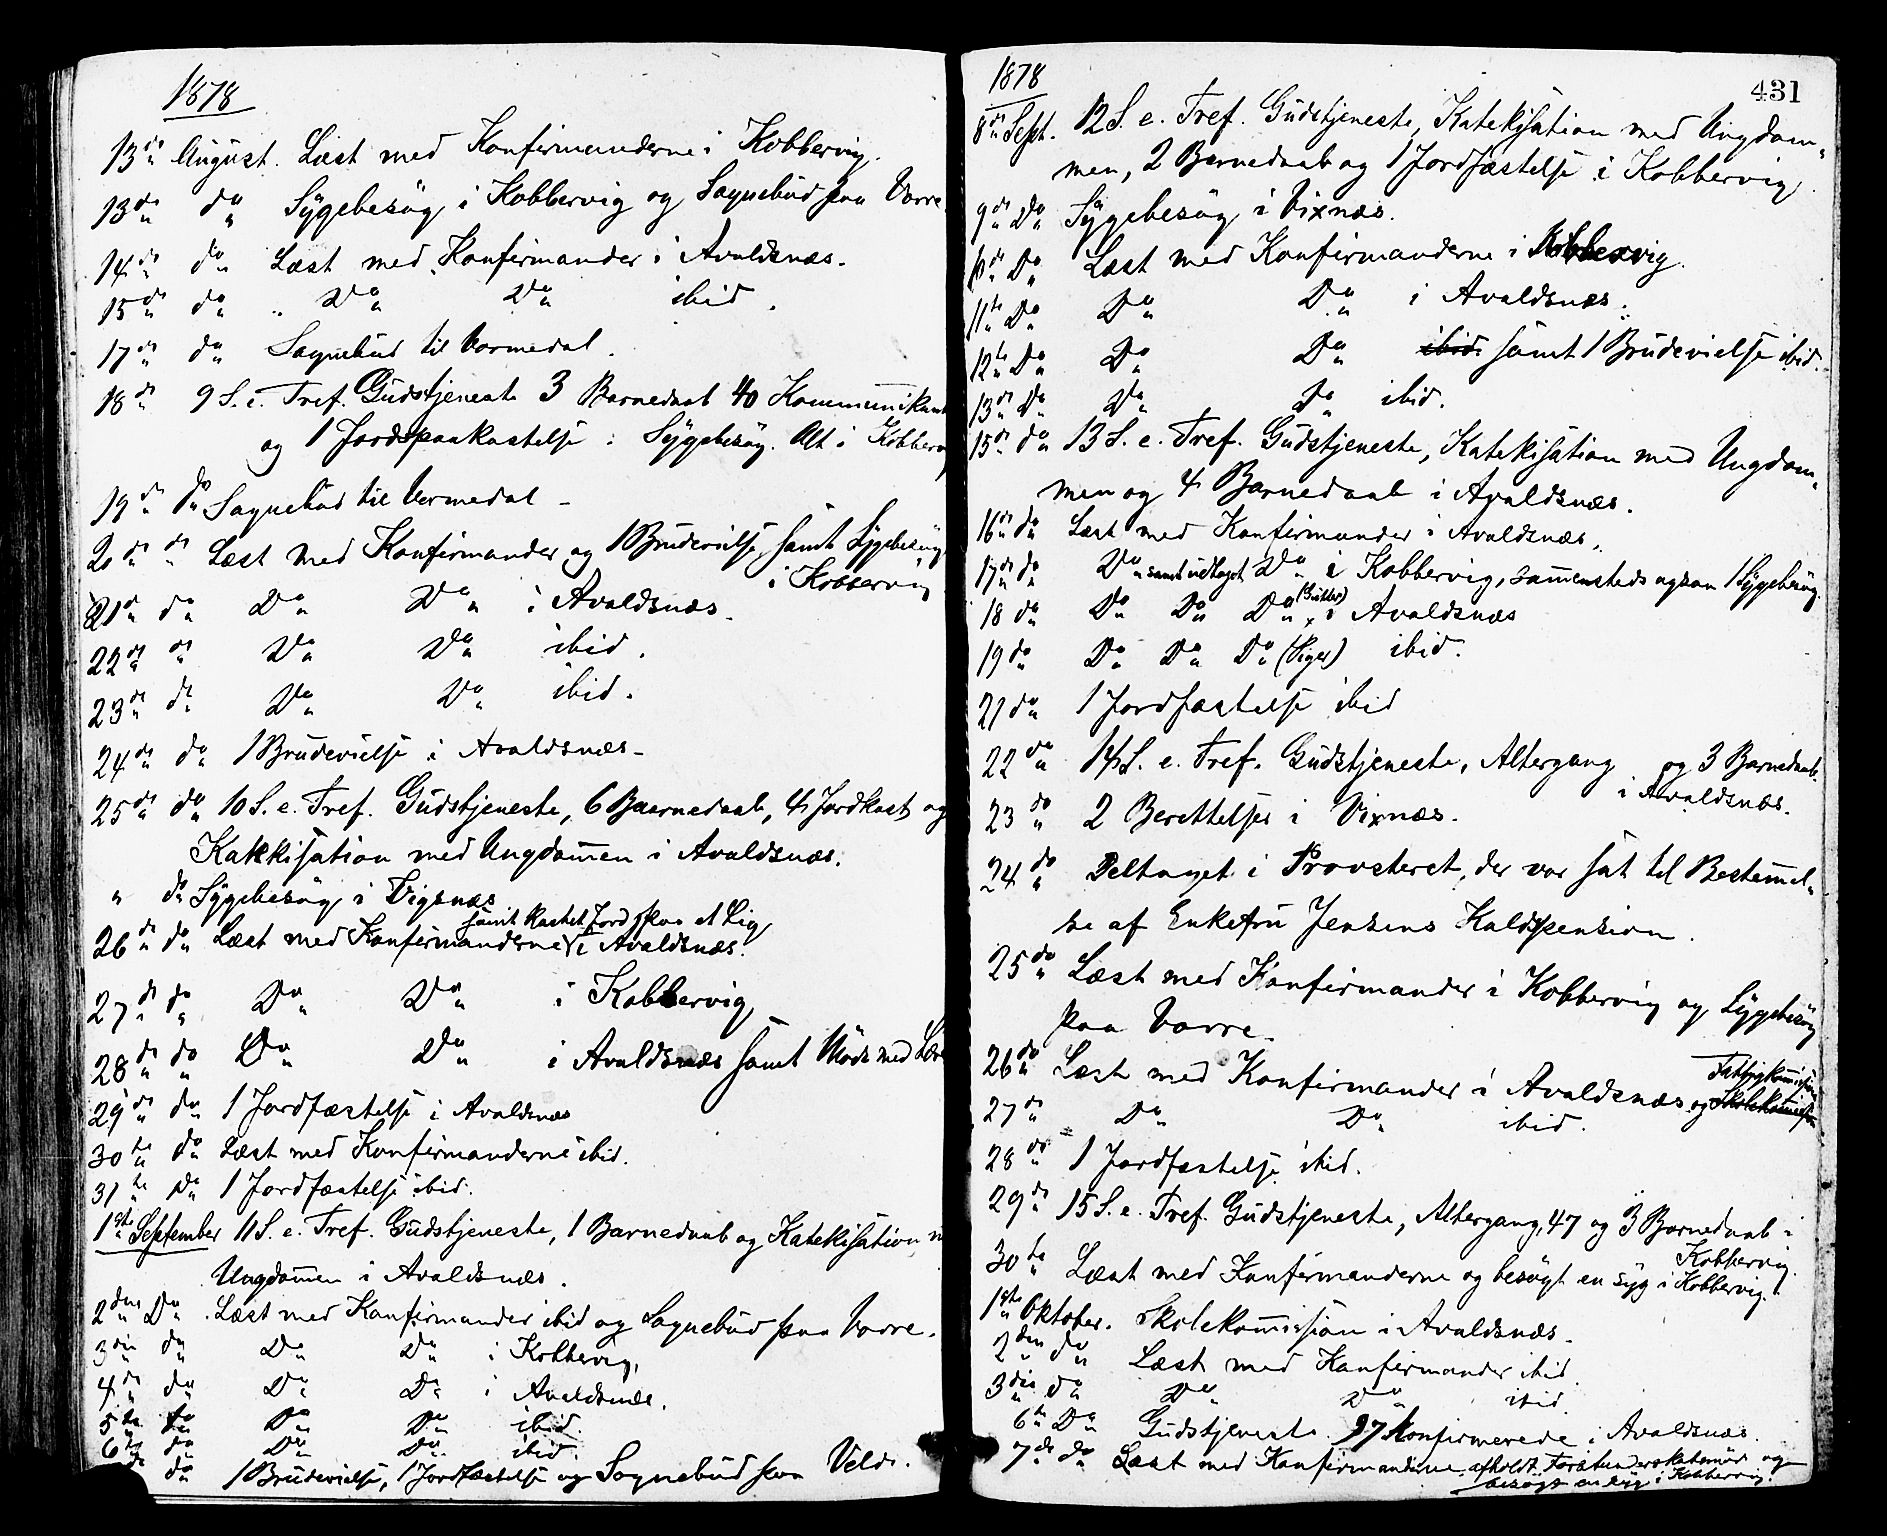 1878
13de August. Læst med Konfirmanderne i Kobbervig.
13de do Sÿgebesög i Kobbervig og Sognebud paa Vorre.
14de do Læst med Konfirmander i Avaldsnæs.
15de do " Do Do ibid.
17de do Sognebud til Vormedal.
18de 9 S. e. Tref. Gudstjeneste 3 Barnedaab 40 Kommunikant
og 1 Jordspaakastelse : Sÿgebesög. Alt i Kobberv
19de do Sognebud til Vormedal -
20de do Læst med Konfirmander og 1 Brudevielse samt Sÿgebesög
i Kobbervig
21de do Do Do i Avaldsnæs.
22de do Do Do ibid.
23de do Do Do ibid.
24de do 1 Brudevielse i Avaldsnæs -
25de do 10 S. e. Tref. Gudstjeneste, 6 Baarnedaab, 4 Jordkast og
Katekisation med Ungdom̅en i Avaldsnæs.
" do Sÿgebesög i Vigsnæs
samt kastet Jord paa et Lig
26de do Læst med Konfirmanderne i Avaldsnæs.
27de do Do Do i Kobbervig
28de do Do Do i Avaldsnæs samt Möde med
29de do 1 Jordfæstelse i Avaldsnæs
30te do Læst med Konfirmanderne ibid.
31te Do 1 Jordfæstelse ibid.
1ste September 11 S. e. Tref. Gudstjeneste, 1 Barnedaab og Katekisation m
Ungdom̅en i Avaldsnæs.
2den Do. Læst med Konfirmander ibid og Sognebud paa Vorre.
3die do Do Do i Kobbervig.
4de do Do Do i Avaldsnæs.
5te do Do Do ibid.
6te do Do Do ibid.
do 1 Brudevielse, 1 Jordfæstelse og Sognebud paa Velde.
1878
431
8de Sept. 12 S. e. Tref. Gudstjeneste, Katekisation med Ungdom-
men, 2 Barnedaab og 1 Jordfæstelse i Kobbervig.
9de Do Sÿgebesög i Vixnæs.
10de Do Læst med Konfirmanderne i Kobbervig.
11te Do Do Do i Avaldsnæs.
12te Do Do Do ibid. samt 1 Brudevielse ibid.
13de Do Do Do ibid.
15de do 13 S. e. Tref. Gudstjeneste, Katekisation med Ungdom-
men og 4 Barnedaab i Avaldsnæs.
16de do Læst med Konfirmander i Avaldsnæs.
17de do Do samt udtaget Do i Kobbervig, sammensteds ogsaa 1 Sÿgebesög.
18 do Do Do Do (Gutter) i Avaldsnæs
19 do Do Do Do (Piger) ibid.
21 do 1 Jordfæstelse ibid
22 do 14 S. e. Tref. Gudstjeneste, Altergang og 3 Barnedaab.
i Avaldsnæs.
23 do 2 Berettelser i Vixnæs.
24 do Deltaget i Provsteret, der var sat til Bestem̅el-
se af Enkefru Jensens Kaldspension.
25 do Læst med Konfirmander i Kobbervig og Sÿgebesög
paa Vorre.
26 do Læst med Konfirmander i Avaldsnæs og Skolekom̅ission Fattigkom̅ission
27 do Do Do ibid.
28 do 1 Jordfæstelse ibid.
29 de 15 S. e. Tref. Gudstjeneste, Altergang, 47 og 3 Barnedaab i
Kobbervig.
30te Læst med Konfirmanderne og besögt en sÿg i Kobbervig.
1ste Oktober. Skolekom̅ission i Avaldsnæs.
2den do Læst med Konfirmander ibid.
3die do Do Do ibid.
6te Do Gudstjeneste. 97 Konfirmerede i Avaldsnæs.
7de do Læst med Konfirmanderne, afholdt og
besögt en syg i Kobbervig.